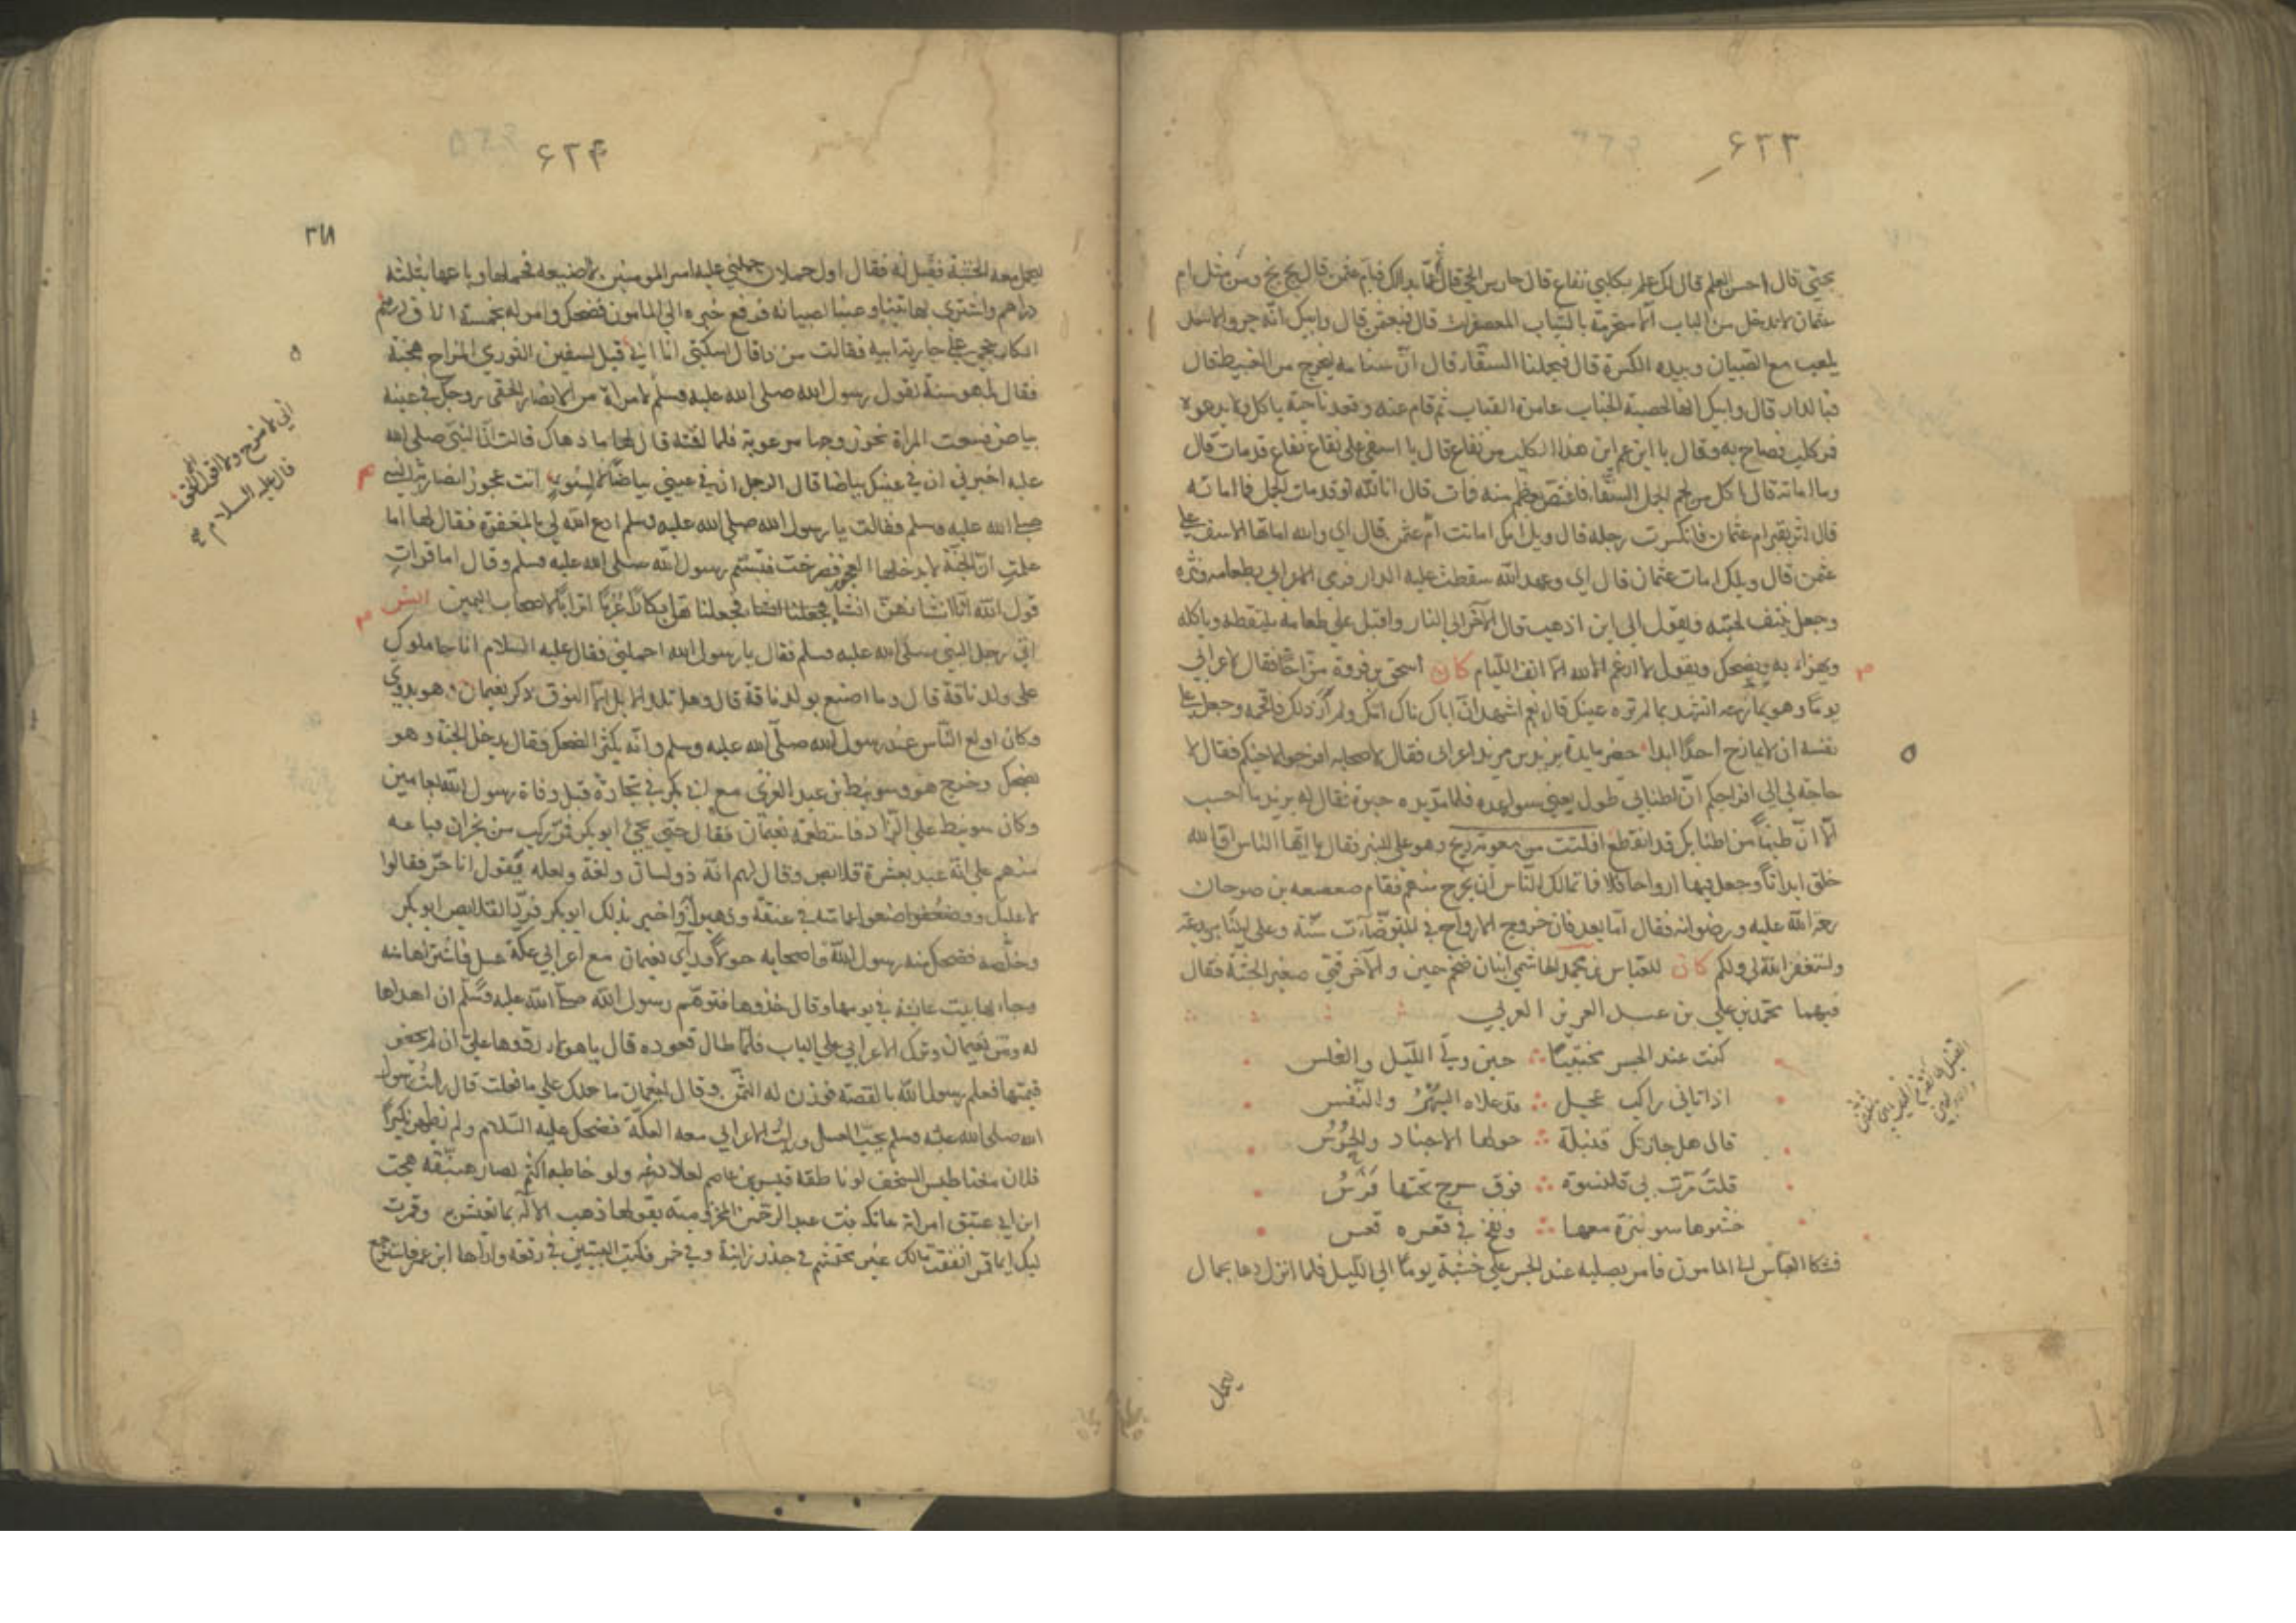 ٦٢٣
قال احسن العلم قال لك علم بكلبي نفاع قال حارس الحي قال قال بخ بخ ومن مثل ام
عثمان لا يدخل من الباب الا منحرفة بالثياب المعصفرات قال فبعثمن قال وابيك انه جرو الاسد
يلعب مع الصبيان وبيده الكسرة قال فبجملنا السقاء قال ان سنامه يخرج من الغبيط قال
فبالدار قال وابيك انها لخصيبة الجناب عامرة القباب ثم قام عنه وقعد ناحية ياكل ولا يدعوه
فمر كلب فصاح به وقال يا ابن عم اين هذا الكلب من نفاع قال يا اسفى على نفاع نفاع قد مات قال
وما اماته قال اكل من لحم الجمل السقاء فاغتص بعظم منه فمات قال انا لله او قد مات الجمل فما اماته
قال عثر بقبر ام عثمان فانكسرت رجله قال ويلك اماتت ام عثمن قال اي والله اماتها الاسف على
عثمن قال ويلك امات عثمان قال اي وعهد الله سقطت عليه الدار فرمى الاعرابي بطعامه ونثره
وجعل ينتف لحيته ويقول الى اين اذهب قال الآخر الى النار واقبل على طعامه يلتقطه وياكله
ويهزا به ويضحك ويقول لا ارغم الله الا انف اللئام كان اسحق بن فروة مزاحا فقال لاعرابي
يوما وهو يمازحه اتشهد بما لم تره عينك قال نعم اشهد ان اباك ناك امك ولم ار ذلك فافحمه وجعل على
نفسه ان لا يمازح احدا ابدا حضر مايدة يزيد بن مزيد اعرابي فقال لاصحابه افرجوا لاخيكم فقال لا
حاجة لي الى افراجكم ان اطنابي طول يعني سواعده فلما مد يده حبق فقال له يزيد ما احسب
الا ان طنبا من اطنابك قد انقطع افلتت من معوية ريح وهو على المنبر فقال يا ايها الناس ان الله
خلق ابدانا وجعل فيها ارواحا فلا تمالك الناس ان يخرج منهم فقام صعصعه بن صوحان
رحمة الله عليه ورضوانه فقال اما بعد فان خروج الارواح في المتوضآت سنة وعلى المنابر بدعة
واستغفر الله لي ولكم كان للعباس بن محمد الهاشمي ابنان ضخم حين والآخر فتى صغير الجثة فقال
فيهما محمد بن علي بن عبد العزيز العربي
كنت عند الجسر مختبيا ∴ حين ولى الليل والغلس
اذ اتاني راكب عجل ∴ قد علاه البهر والنفس
قال هل جازتك قنبلة ∴ حولها الاجناد والحرس
قلت مرت بي قلنسوة ∴ فوق سرج تحتها فرس
خشوها ∴ في قعره قعس
فشكا العباس الى المامون فامر بصلبه عند الجسر على خشبة يوما الى الليل فلما انزل دعا بحمال
يحمل
٦٢٤
٣١١
ليحمل معه الخشبة فقيل له فقال اول حملان حملني عليه امير المومنين لا اضيعه فحملها وباعها بثلثة
دراهم واشترى بها تينا وعنبا لصبيانه فرفع خبره الى المامون فضحك وامر له بخمسة الاف درهم
على جارية ابيه فقالت من ذا قال اسكتي انا ابي قيل لسفين الثوري المزاح هجنة
فقال بل هو سنة لقول رسول الله صلى الله عليه وسلم لامراة من الانصار الحقي زوجك ففي عينه
بياض فسعت المراة نحو زوجها مرعوبة فلما لقته قال لها ما دهاك قالت ان النبي صلى الله
عليه اخبرني ان في عينك بياضا قال الرجل ان في عيني بياضا لا لسوء اتت عجوز انصارية النبي
صلى الله عليه وسلم فقالت يا رسول الله صلى الله عليه وسلم ادع الله لي بالمغفرة فقال لها اما
علمت ان الجنة لا يدخلها العجز فصرخت فتبسم رسول الله صلى الله عليه وسلم وقال اما قرات
قول الله انا انشاناهن انشاء فجعلناهن ابكارا عربا اترابا لاصحاب اليمين
اتى رجل النبي صلى الله عليه وسلم فقال يا رسول الله احملني فقال عليه السلام انا حاملوك
على ولد ناقة قال وما اصنع بولد ناقة قال وهل تلد الابل الا النوق ذكر نعيمان وهو بدري
وكان اولع الناس عند رسول الله صلى الله عليه وسلم وانه يكثر الضحك فقال يدخل الجنة وهو
يضحك وخرج هو وسويبط بن عبد العزى مع ابي بكر في تجارة قبل وفاة رسول الله بعامين
وكان سويبط على الزاد فاستطعمه نعيمان فقال حتى يجيء ابو بكر فمر بركب من نجران فباعه
منهم على انه عبد بعشرة قلائص وقال لهم انه ذو لسان ولغة ولعله يقول انا حر فقالوا
لا عليك ووضعوا عمامته في عنقه وذهبوا به واخبر بذلك ابو بكر فرد القلايص ابو بكر
وخلصه فضحك منه رسول الله واصحابه حولا وراى نعيمان مع اعرابي عكة عسل فاشتراها منه
وجاء بها بيت عائشة في يومها وقال خذوها فتوهم رسول الله صلى الله عليه وسلم ان اهداها
له ومر نعيمان وترك الاعرابي على الباب فلما طال قعوده قال يا هولاء ردوها علي ان لم تحضر
قيمتها فعلم رسول الله بالقصة فوزن له الثمن وقال لنعيمان ما حملك على ما فعلت قال رايت رسول
الله صلى الله عليه وسلم يحب العسل ورايت الاعرابي معه العكة فضحك عليه السلام ولم يظهر نكيرا
فلان مغناطيس السخف لو ناطقه قيس بن عاصم ولو خاطبه اكثم لصار هبنقة هجت
ابن ابي عتيق امراته عاتكة بنت عبد الرحمن المخزومية بقولها ذهب الاله بما تعيش به وقمرت
ليلك ايما قمر انفقت مالك غير محتشم في جذر زانية وفي خمر فكتب البيتين في رقعة واراها ابن عمر فاسترجع
اني لامزح ولا اقول الا الحق
قال عليه السلام